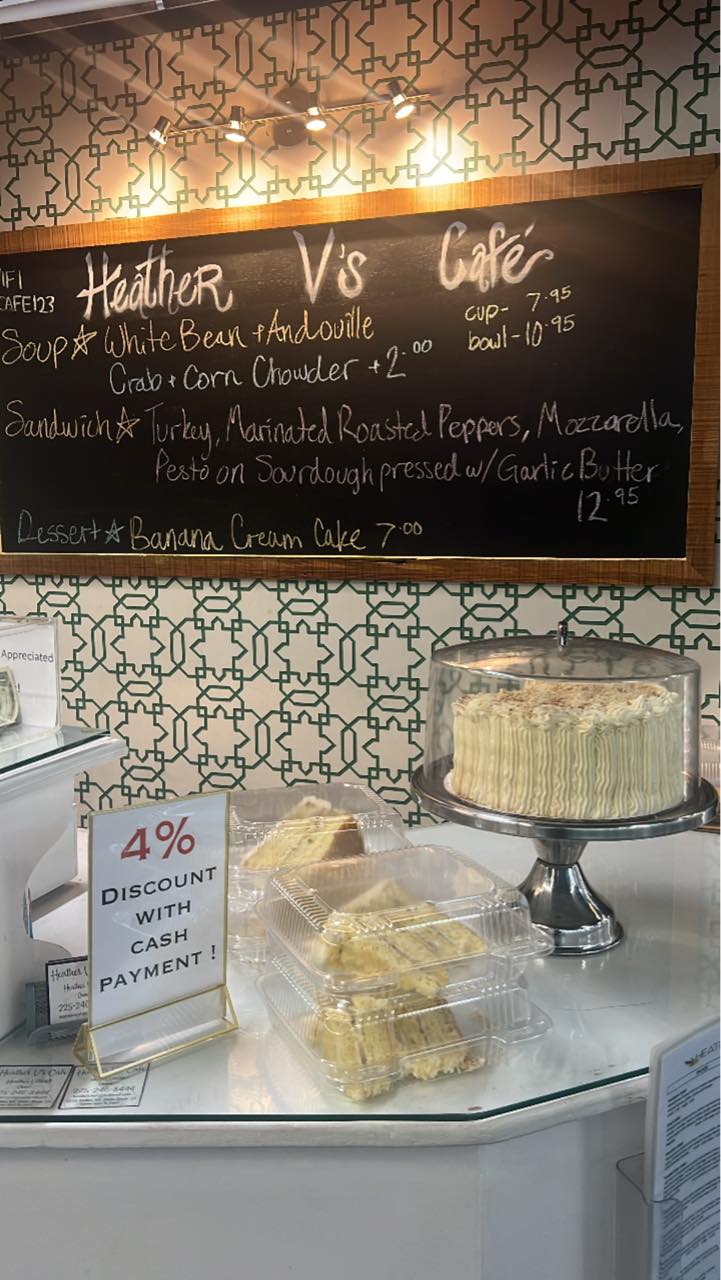 Heather V's Café
CAFE123
cup- 7.95
bowl-10.95
Soup☆ White Bean + Andouille
Crab + Corn Chowder +2.00
Sandwich☆ Turkey, Marinated Roasted Peppers, Mozzarella,
Pesto on Sourdough pressed w/ Garlic Butter
12.95
Dessert☆ Banana Cream Cake 7.00
Appreciated
4%
DISCOUNT
WITH
CASH
PAYMENT !
Heather